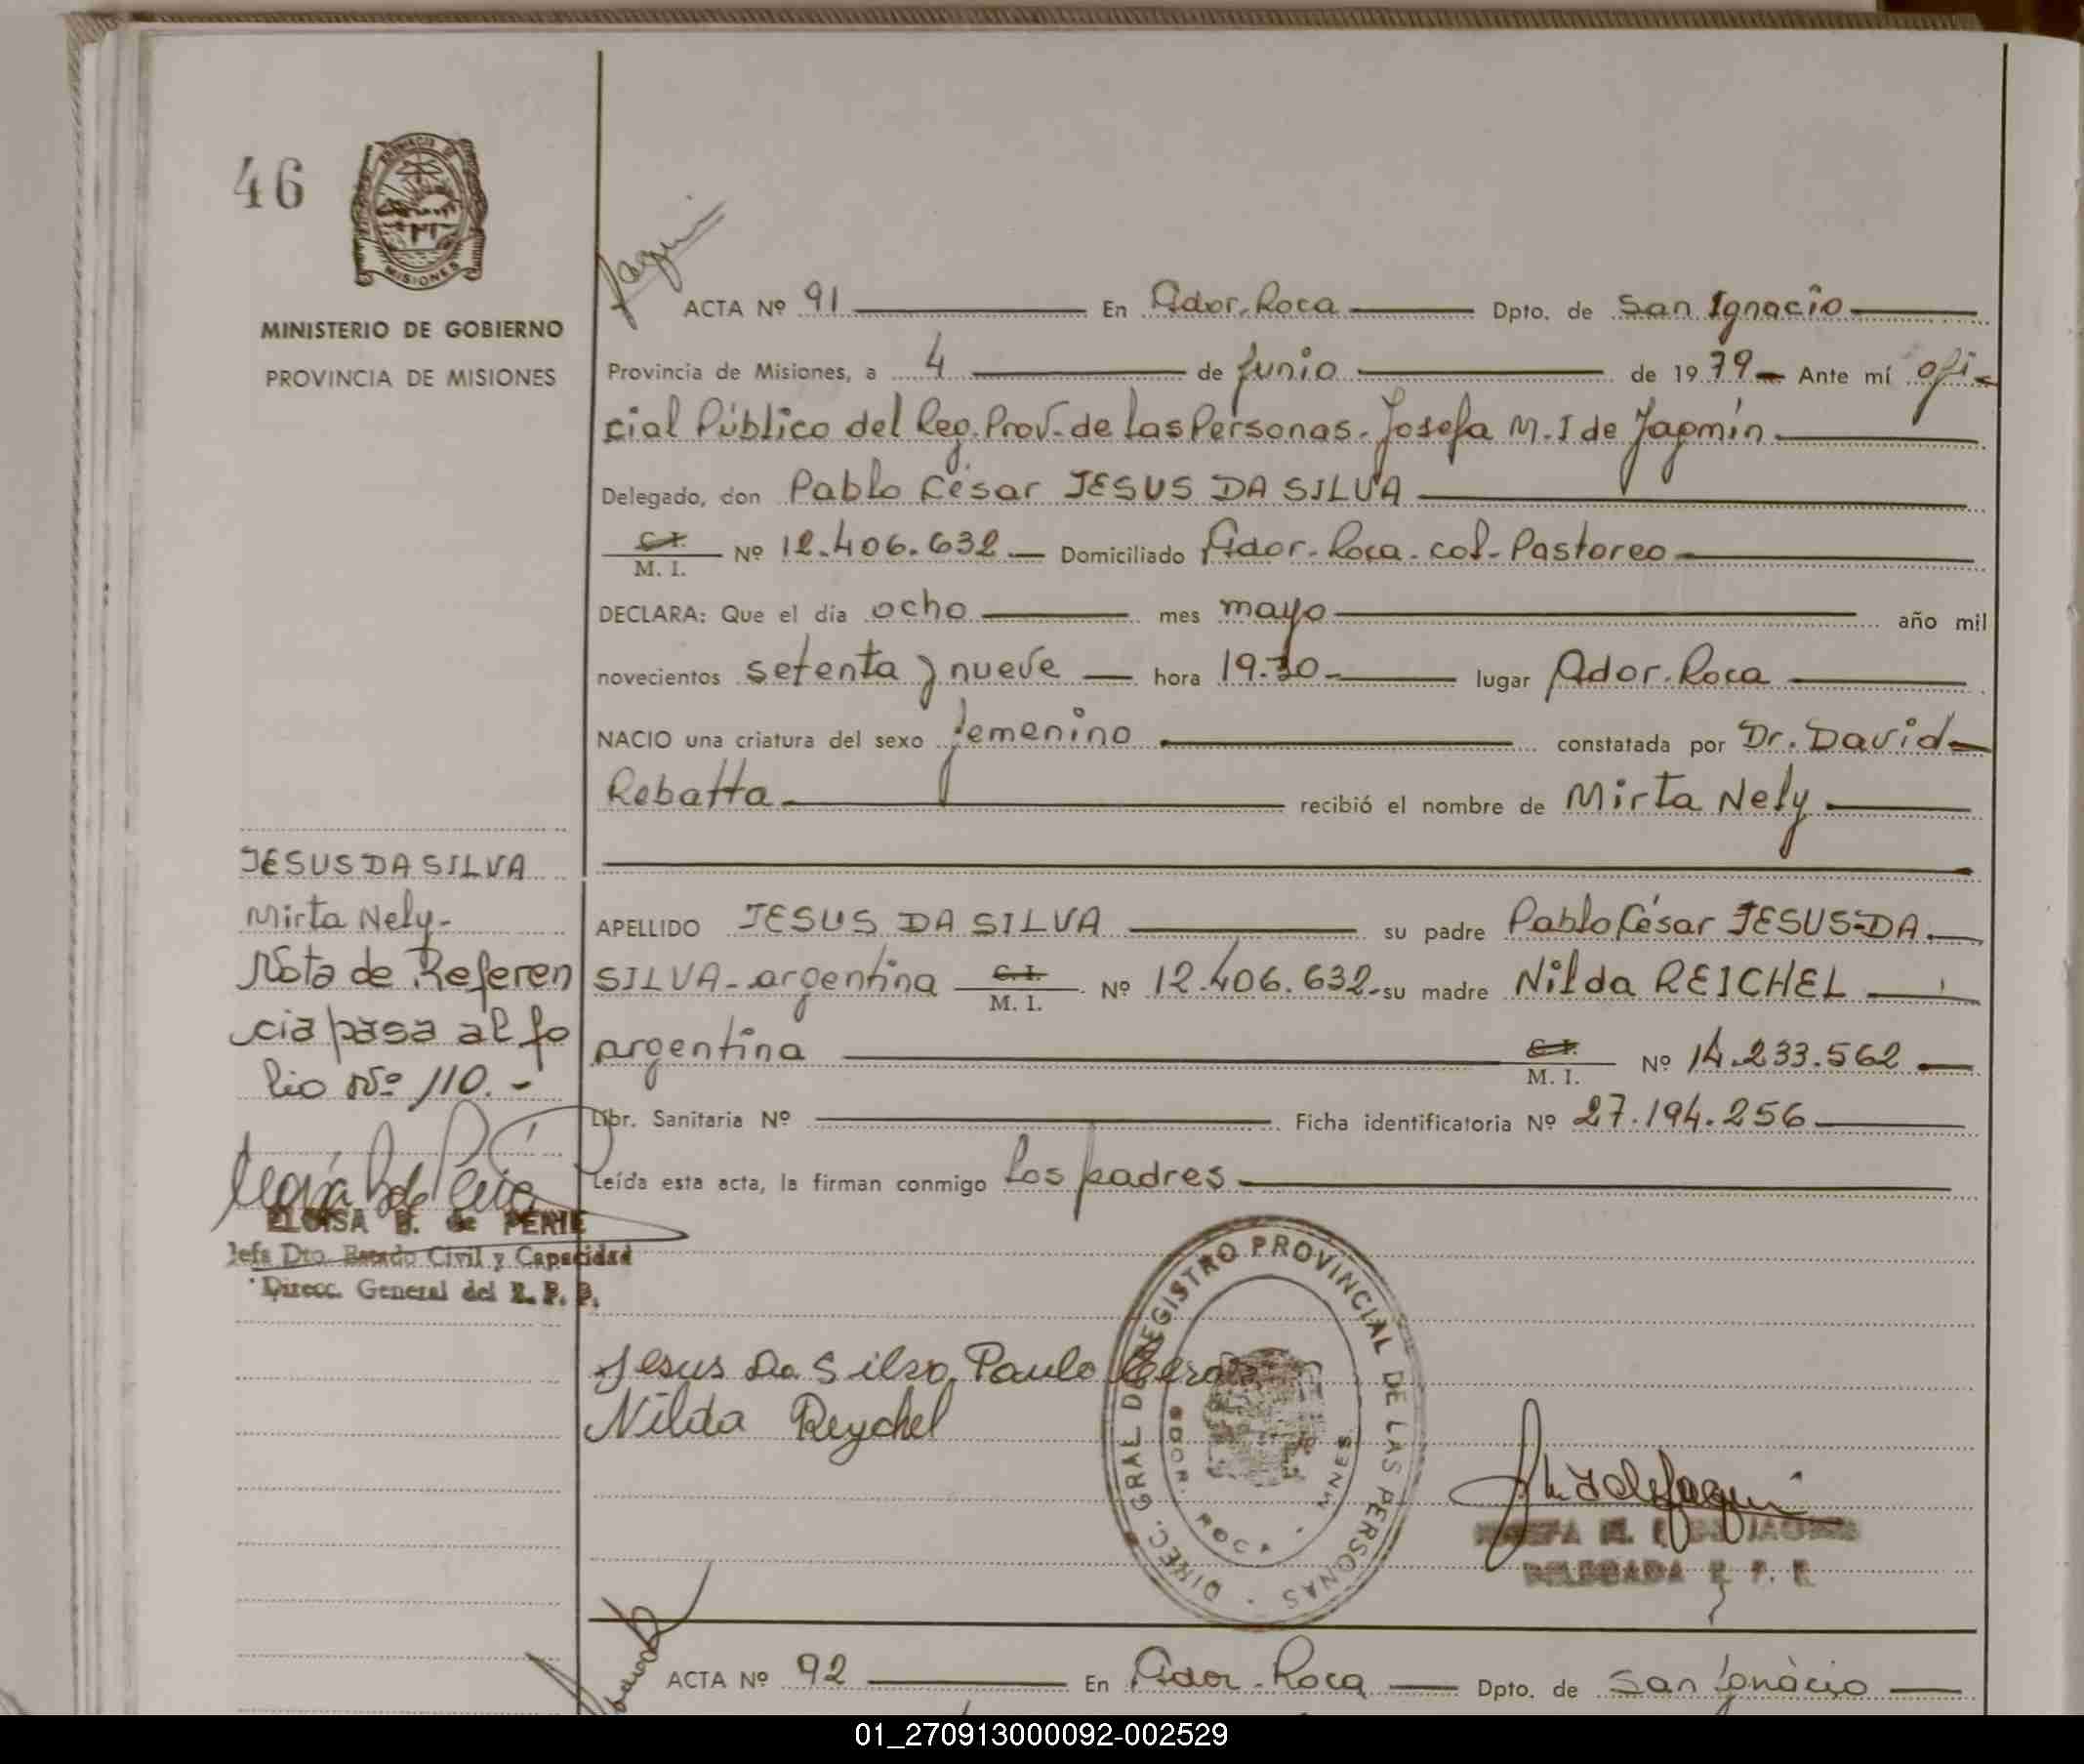 46
PROVINCIA DE
MISIONES
MINISTERIO DE GOBIERNO
PROVINCIA DE MISIONES
ACTA Nº 91 En Gdor. Roca Dpto. de San Ignacio
Provincia de Misiones, a 4 de Junio de 1979 - Ante mí ofi-
cial Público del Reg. Prov. de las Personas. Josefa M. I de Jagmín
Delegado, don Pablo César JESUS DA SILVA
C. I.
M. I. Nº 12.406.632 Domiciliado Gdor. Roca. col. Pastoreo
DECLARA: Que el día ocho mes mayo año mil
novecientos setenta y nueve hora 19.30 lugar Gdor. Roca
NACIO una criatura del sexo femenino constatada por Dr. David
Rebatta recibió el nombre de Mirta Nely
APELLIDO JESUS DA SILVA su padre Pablo César JESUS-DA
SILVA - argentina C. I. M. I. Nº 12.406.632 - su madre Nilda REICHEL
argentina C. I. M. I. Nº 14.233.562
Libr. Sanitaria Nº Ficha identificatoria Nº 27.194.256
Leída esta acta, la firman conmigo los padres
JESUS DA SILVA
Mirta Nely -
Nota de Referen
cia pasa al fo
lio Nº 110. -
ELOISA B. de PERIE
Jefa Dto. Estado Civil y Capacidad
Direcc. General del R. P. P.
Jesus Da Silva Paulo
Nilda Reychel
DIREC. GRAL DE REGISTRO PROVINCIAL DE LAS PERSONAS
GDOR. ROCA - MNES
JOSEFA M. I. DE JAGMIN
DELEGADA R. P. P.
ACTA Nº 92 En Gdor. Roca Dpto. de San Ignacio
01_270913000092-002529